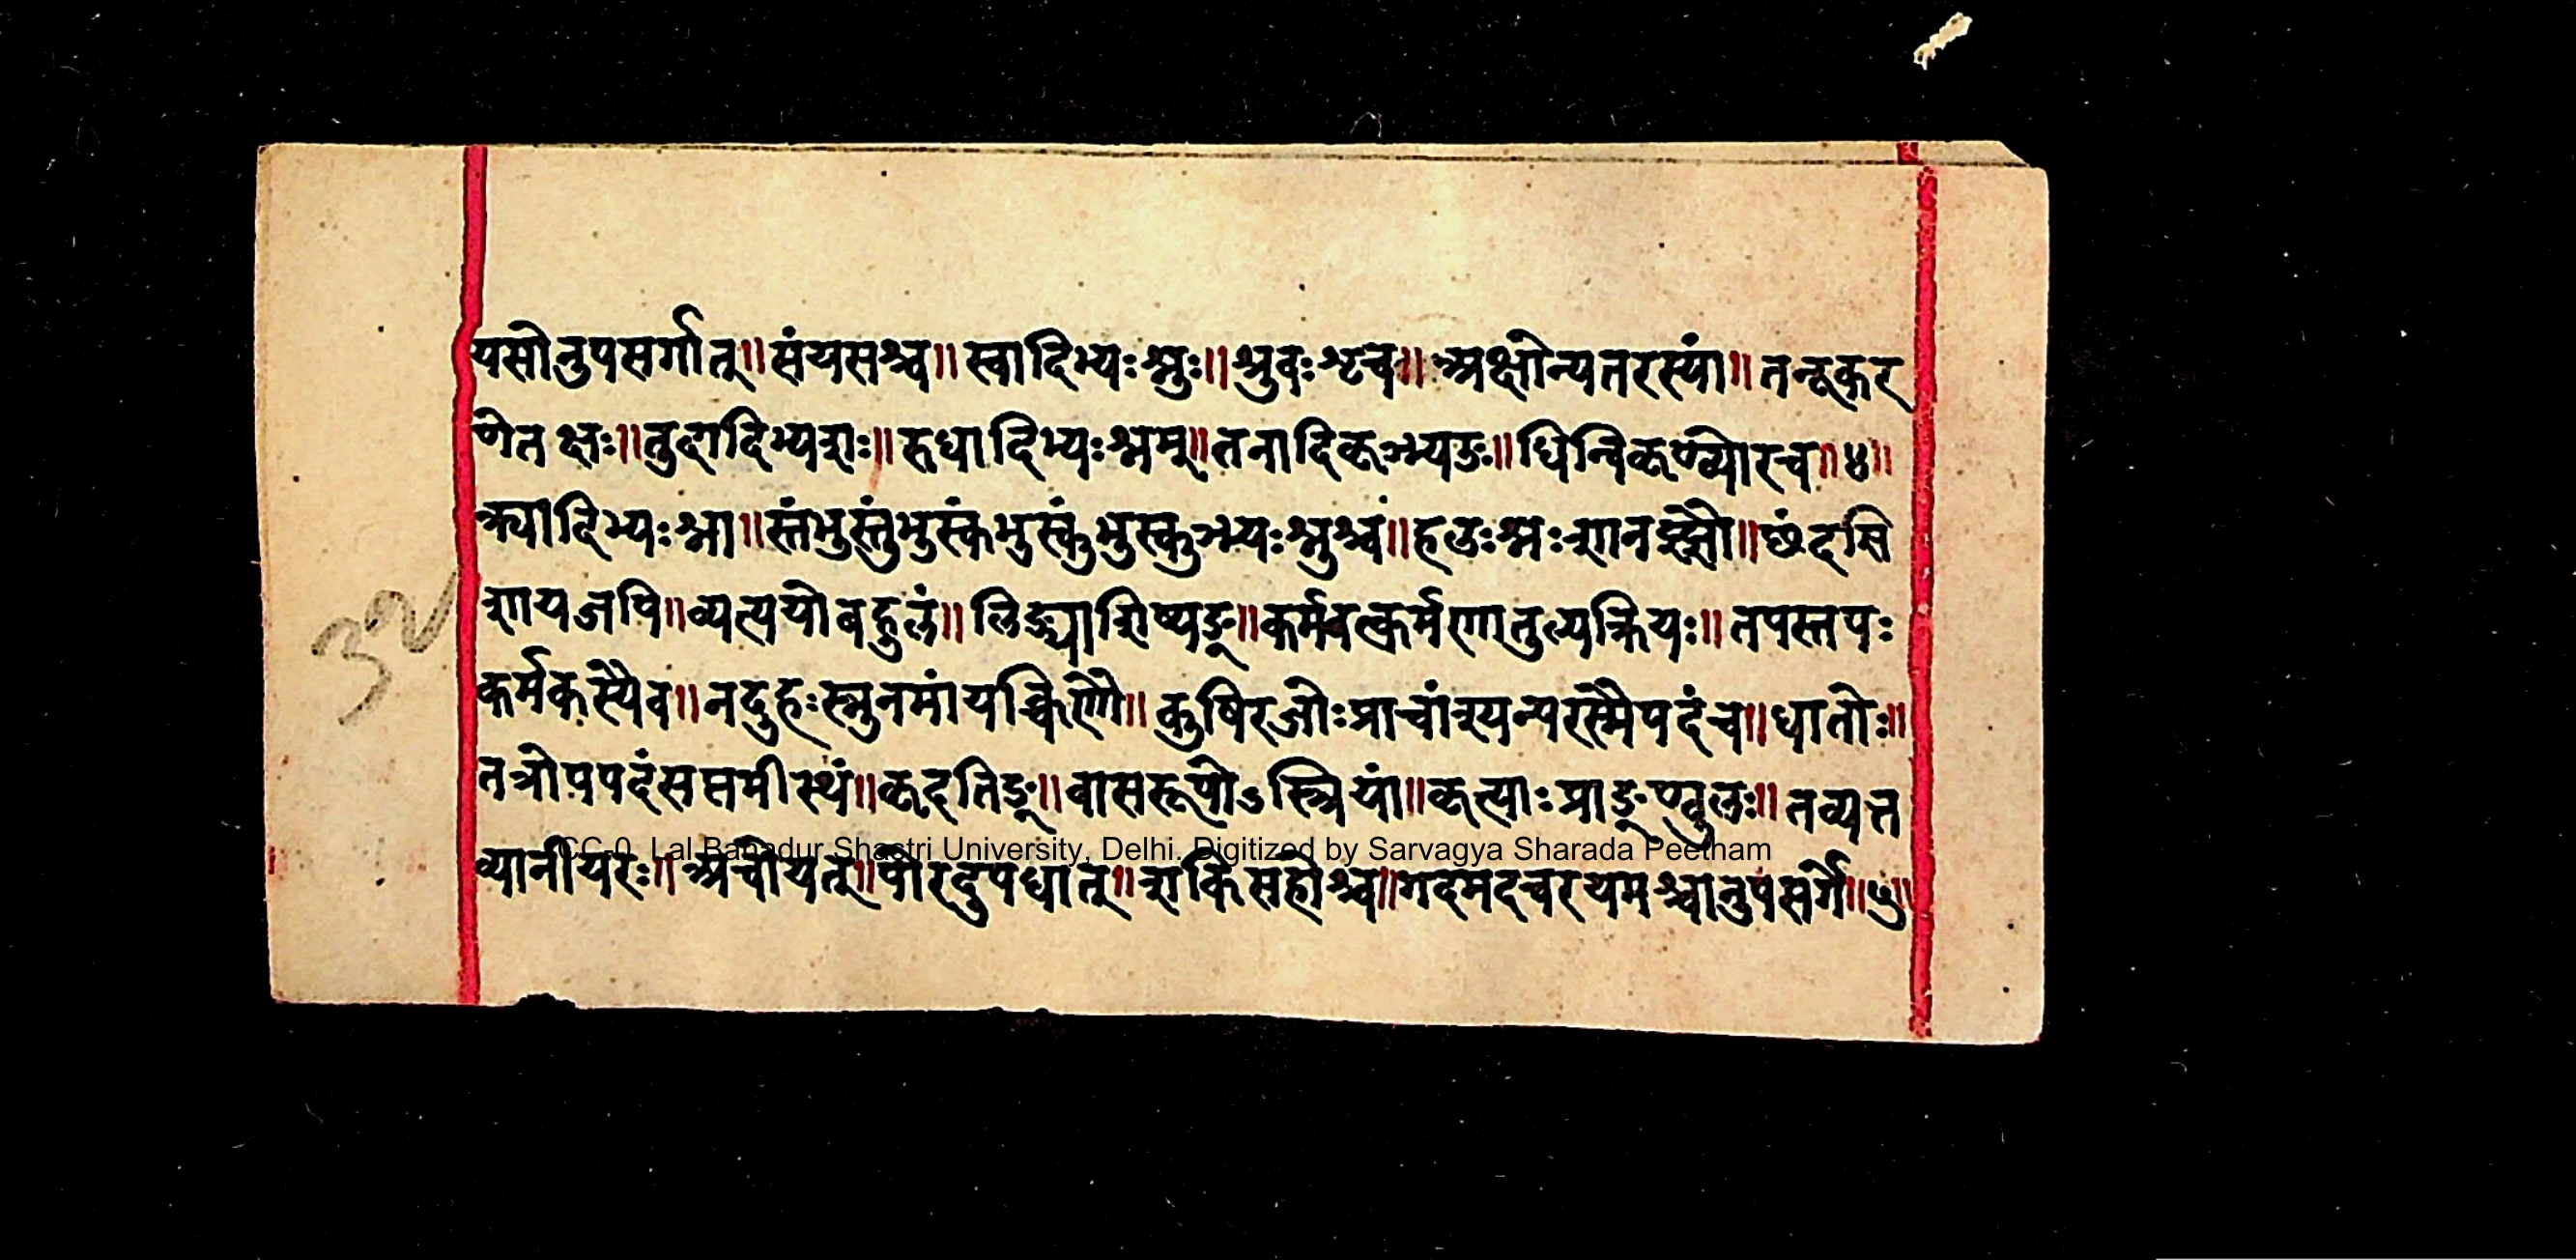 यसोनुपसर्गात्॥संयसश्च॥स्वादिभ्यःश्नुः॥श्रुवःशृच॥अक्षोन्यतरस्यां॥तनूकर
णेतक्षः॥तुदादिभ्यशः॥रुधादिभ्यःश्नम्॥तनादिकृञ्भ्यउः॥धिन्विकृण्व्योरच॥४॥
क्र्यादिभ्यःश्ना॥स्तंभुस्तुंभुस्कंभुस्कुंभुस्कुञ्भ्यःश्नुश्च॥हलःश्नःशानज्झौ॥छंदसि
शायजपि॥व्यत्ययोबहुलं॥लिङ्याशिष्यङ्॥कर्मवत्कर्मणातुल्यक्रियः॥तपस्तपः
कर्मकस्यैव॥नदुहःस्नुनमांयक्चिणौ॥कुषिरजोःप्राचांश्यन्परस्मैपदंच॥धातोः॥
तत्रोपपदंसप्तमीस्थं॥कृदतिङ्॥वासरूपोऽस्त्रियां॥कृत्याःप्राङ्ण्वुलः॥तव्यत्त
व्यानीयरः॥अचोयत्॥पोरदुपधात्॥शकिसहोश्च॥गदमदचरयमश्चानुपसर्गे॥५॥
CC-0. Lal Bahadur Shastri University, Delhi. Digitized by Sarvagya Sharada Peetham